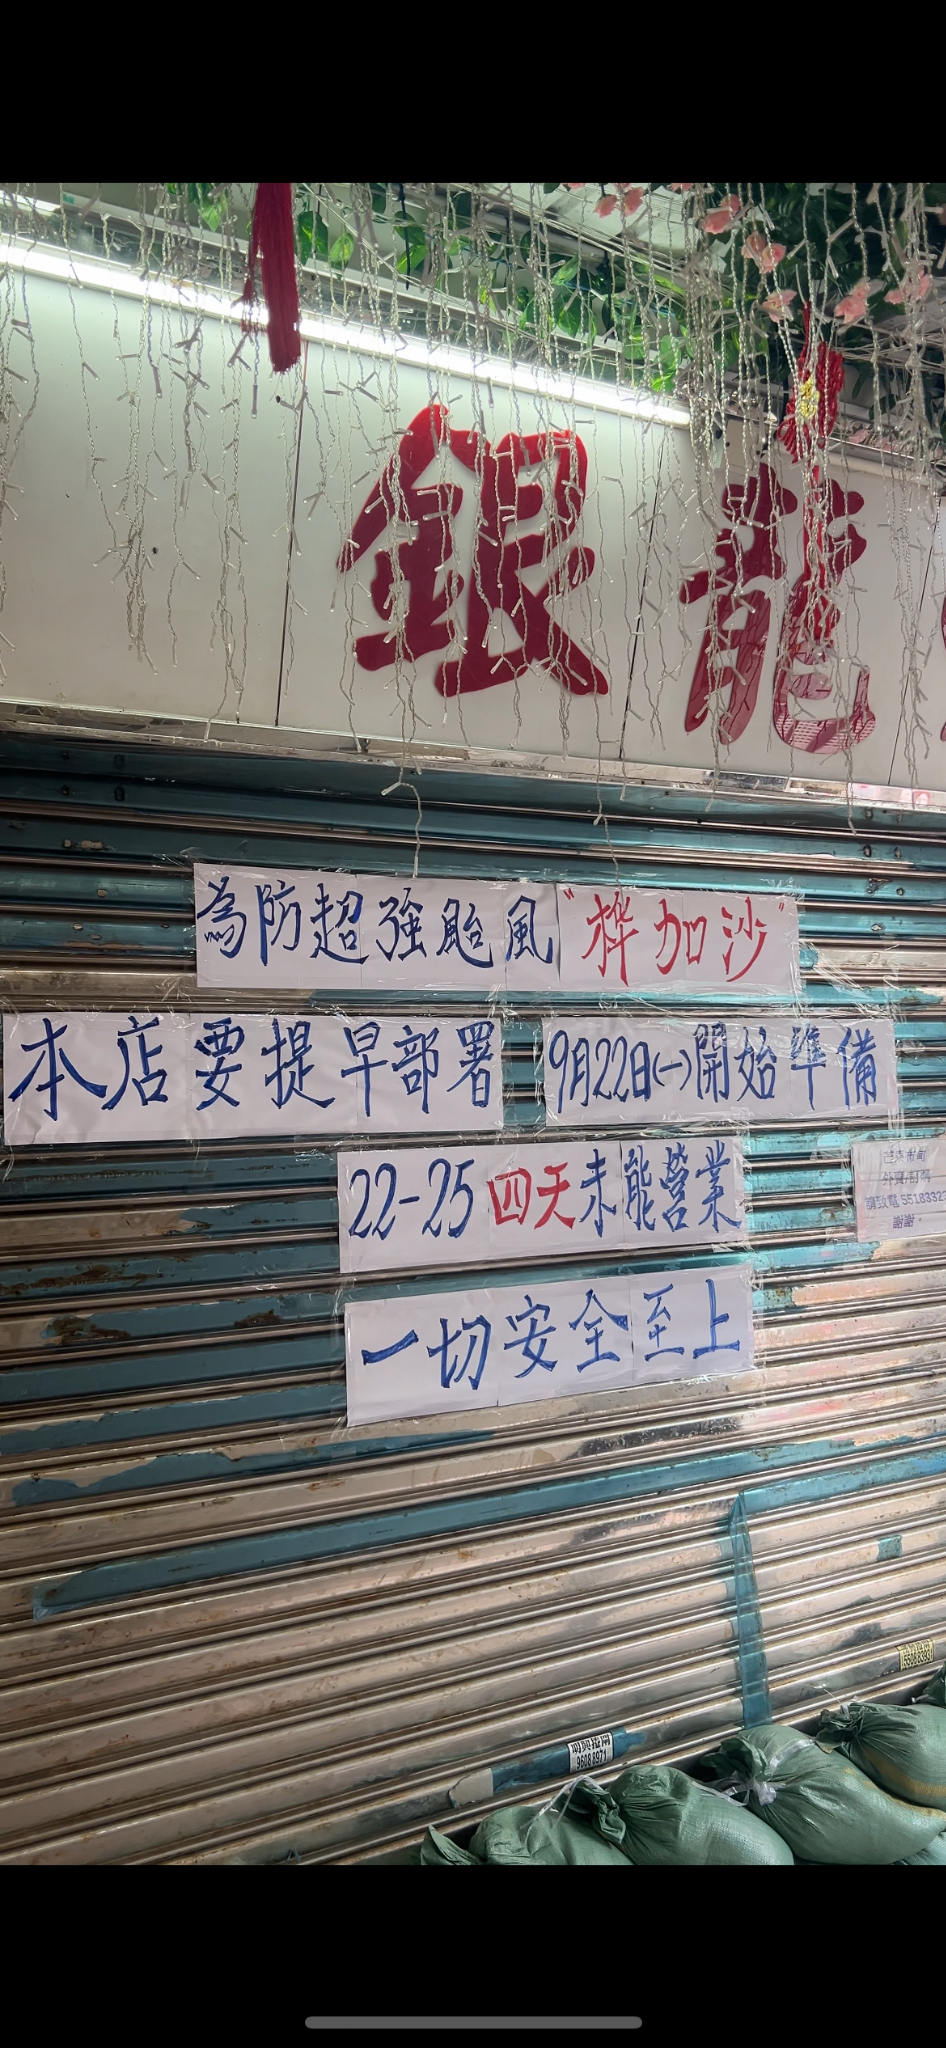 銀龍
為防超強颱風"桦加沙"
本店要提早部署 9月22日(一)開始準備
22-25四天未能營業
一切安全至上
外賣/訂購
請致電 5518332
謝謝。
9608 8971